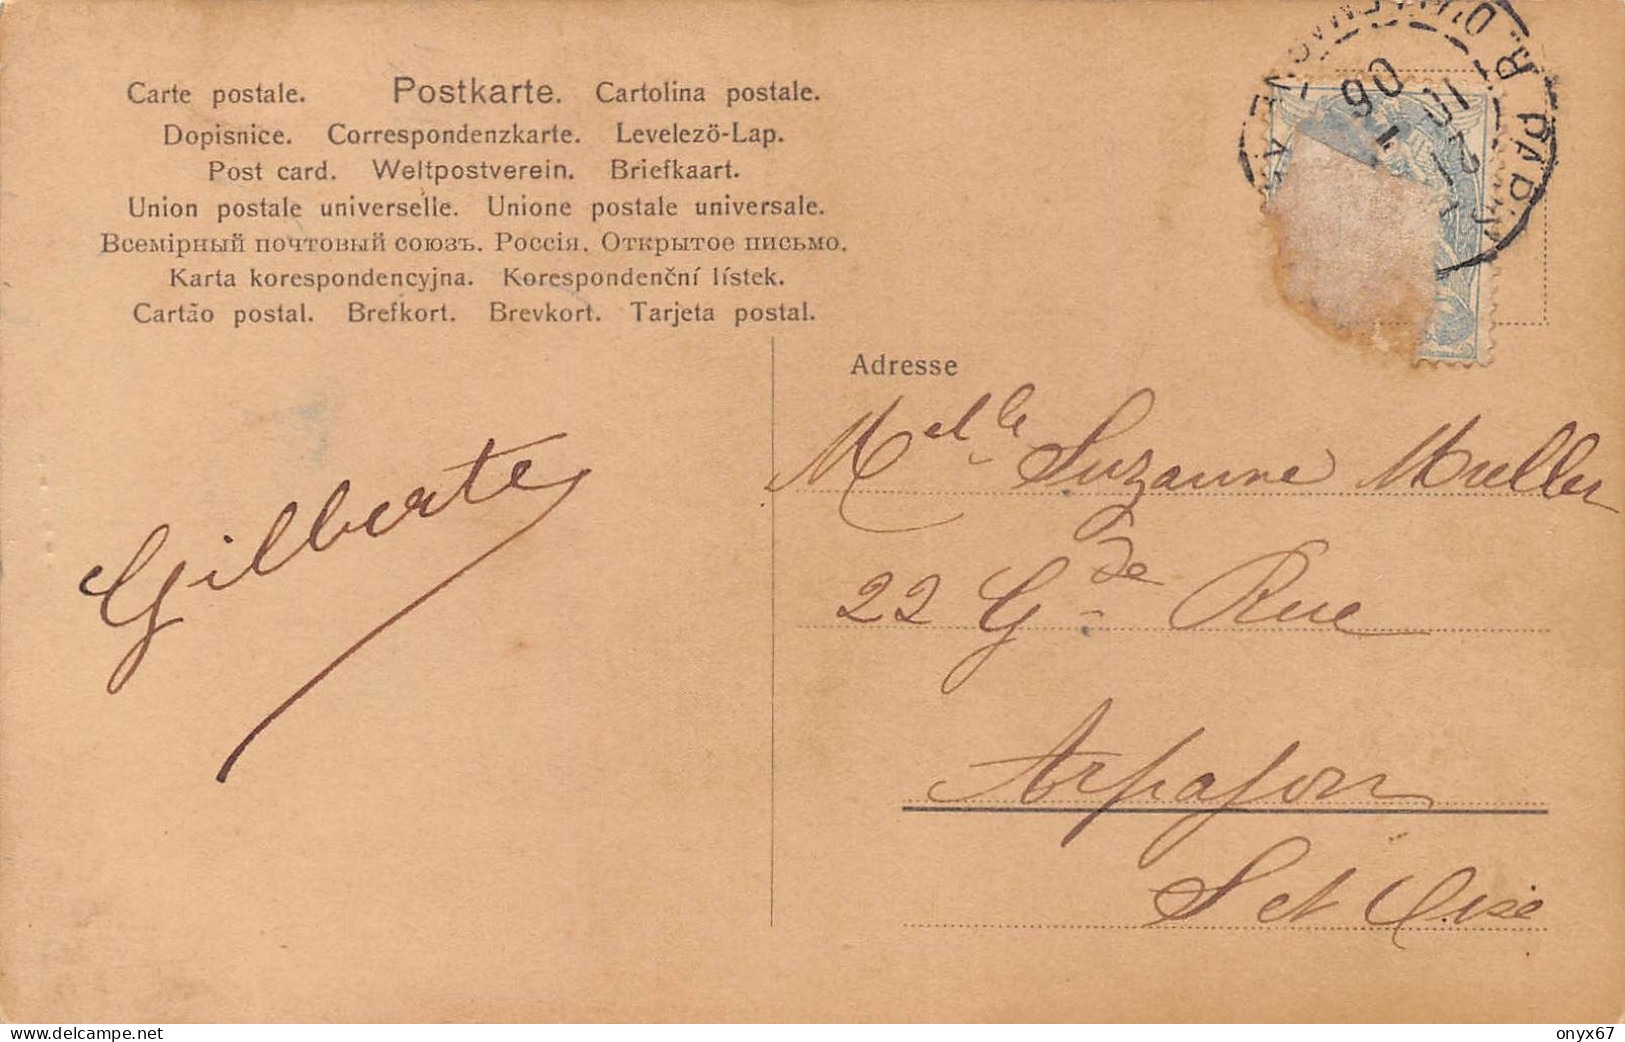 Carte postale. Postkarte. Cartolina postale.
Dopisnice. Correspondenzkarte. Levelezö-Lap.
Post card. Weltpostverein. Briefkaart.
Union postale universelle. Unione postale universale.
Всемірный почтовый союзъ. Россія. Открытое письмо.
Karta korespondencyjna. Korespondenční lístek.
Cartão postal. Brefkort. Brevkort. Tarjeta postal.
PARIS
R. D'ALLEMAGNE
21
11
06
Adresse
Melle Suzanne Muller
22 Gde Rue
Arpajon
S et Oise
Gilberte
www.delcampe.net
onyx67